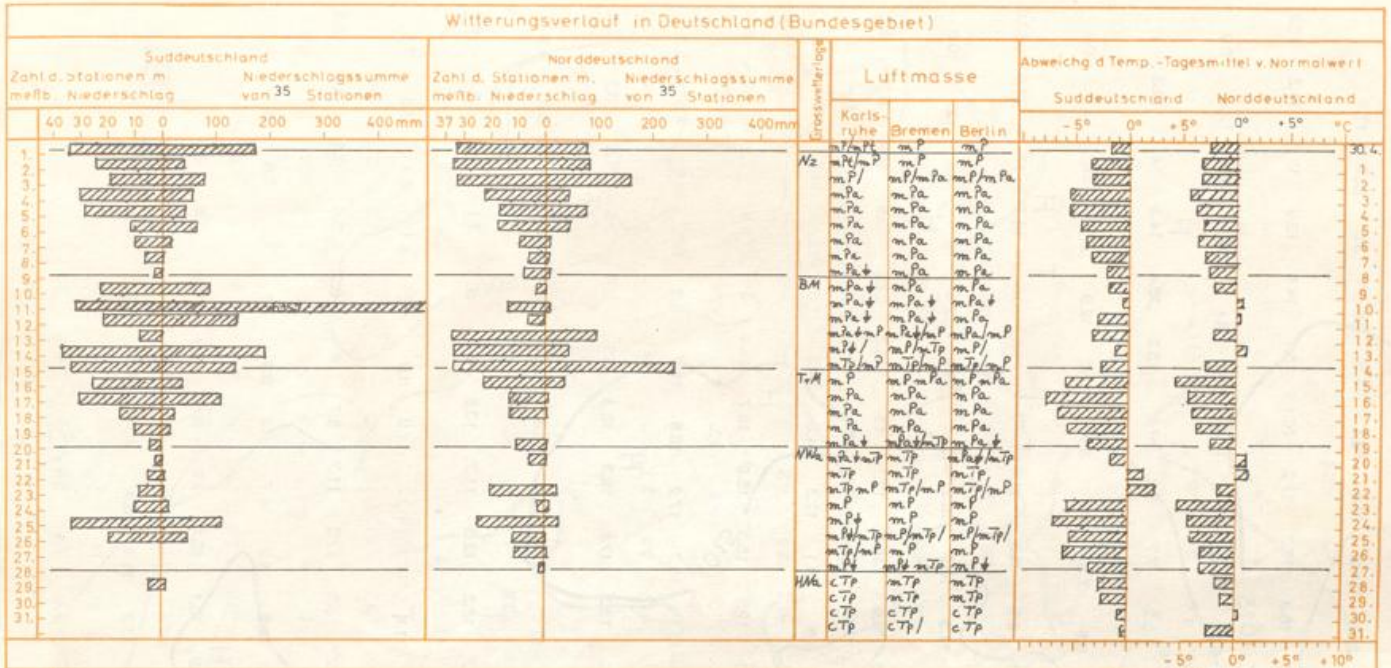 Witterungsverlauf in Deutschland (Bundesgebiet)
Suddeutschland
Zahl. d. Stationen m. Niederschlagssumme
meßb. Niederschlag von 35 Stationen
40 30 20 10 0 100 200 300 400mm
Norddeutschland
Zahl. d. Stationen m. Niederschlagssumme
meßb. Niederschlag von 35 Stationen
37 30 20 10 0 100 200 300 400mm
Grosswetterlage
Luftmasse
Karls-
ruhe Bremen Berlin
Abweichg d Temp. -Tagesmittel v. Normalwert
Suddeutschland Norddeutschland
-5° 0° +5° 0° +5° °C
mP/mPt mP mP 30.4.
1. Nz mPt/mP mP mP 1.
2. mP/ mP/mPa mP/mPa 2.
3. mPa mPa mPa 3.
4. mPa mPa mPa 4.
5. mPa mPa mPa 5.
6. mPa mPa mPa 6.
7. mPa mPa mPa 7.
8. mPa↓ mPa mPa 8.
9. BM mPa↓ mPa mPa 9.
10. mPa↓ mPa↓ mPa↓ 10.
11. mPa↓ mPa↓ mPa 11.
12. mPa↓mP mPa↓/mP mPa/mP 12.
13. mP↓/ mP/mTp mP/ 13.
14. mTp/mP mTp/mP mTp/mP 14.
15. TrM mP mP mPa mP mPa 15.
16. mPa mPa mPa 16.
17. mPa mPa mPa 17.
18. mPa mPa mPa 18.
19. mPa↓ mPa↓/mTp mPa↓ 19.
20. NWa mPa↓mTp mTp mPa↓/mTp 20.
21. mTp mTp mTp 21.
22. mTp mP mTp/mP mTp/mP 22.
23. mP mP mP 23.
24. mP↓ mP mP 24.
25. mP↓/mTp mP/mTp/ mP/mTp/ 25.
26. mTp/mP mP mP 26.
27. mP↓ mP↓ mTp mP↓ 27.
28. HNa cTp mTp mTp 28.
29. cTp mTp mTp 29.
30. cTp cTp cTp 30.
31. cTp cTp/ cTp 31.
-5° 0° +5° +10°